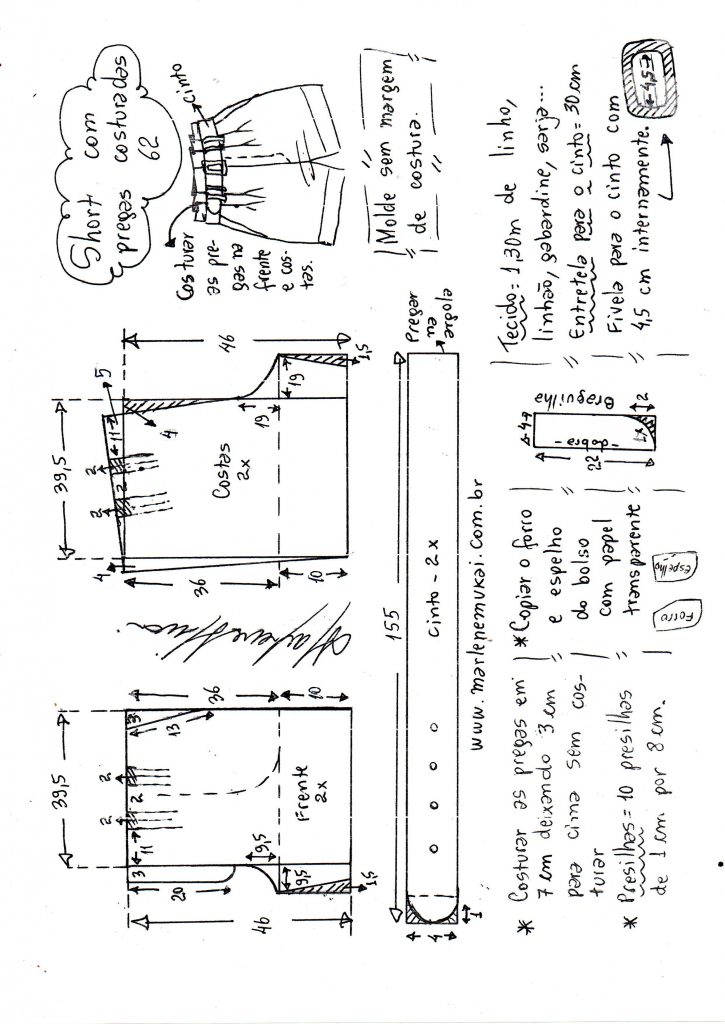 Short com
pregas costuradas
62
cinto
Costurar
as pre-
gas na
frente
e cos-
tas.
Molde sem margem
de costura.
39,5
46
36
10
3
13
2
2
2
11
3
20
9,5
9,5
1,5
46
Frente
2x
39,5
4
36
10
2
2
2
11
5
4
19
19
1,5
46
Costas
2x
155
cinto - 2x
Pregar
na
argola
4
4
1
www.marlenemukai.com.br
* Costurar as pregas em
7 cm deixando 3 cm
para cima sem cos-
turar
* Presilhas = 10 presilhas
de 1 cm por 8 cm.
* Copiar o forro
e espelho
do bolso
com papel
transparente
Forro
Espelho
4
22
-dobra-
1x
2
Braguilha
Tecido = 1,30m de linho,
linhão, gabardine, sarja...
Entretela para o cinto = 30 cm
Fivela para o cinto com
4,5 cm internamente.
4,5